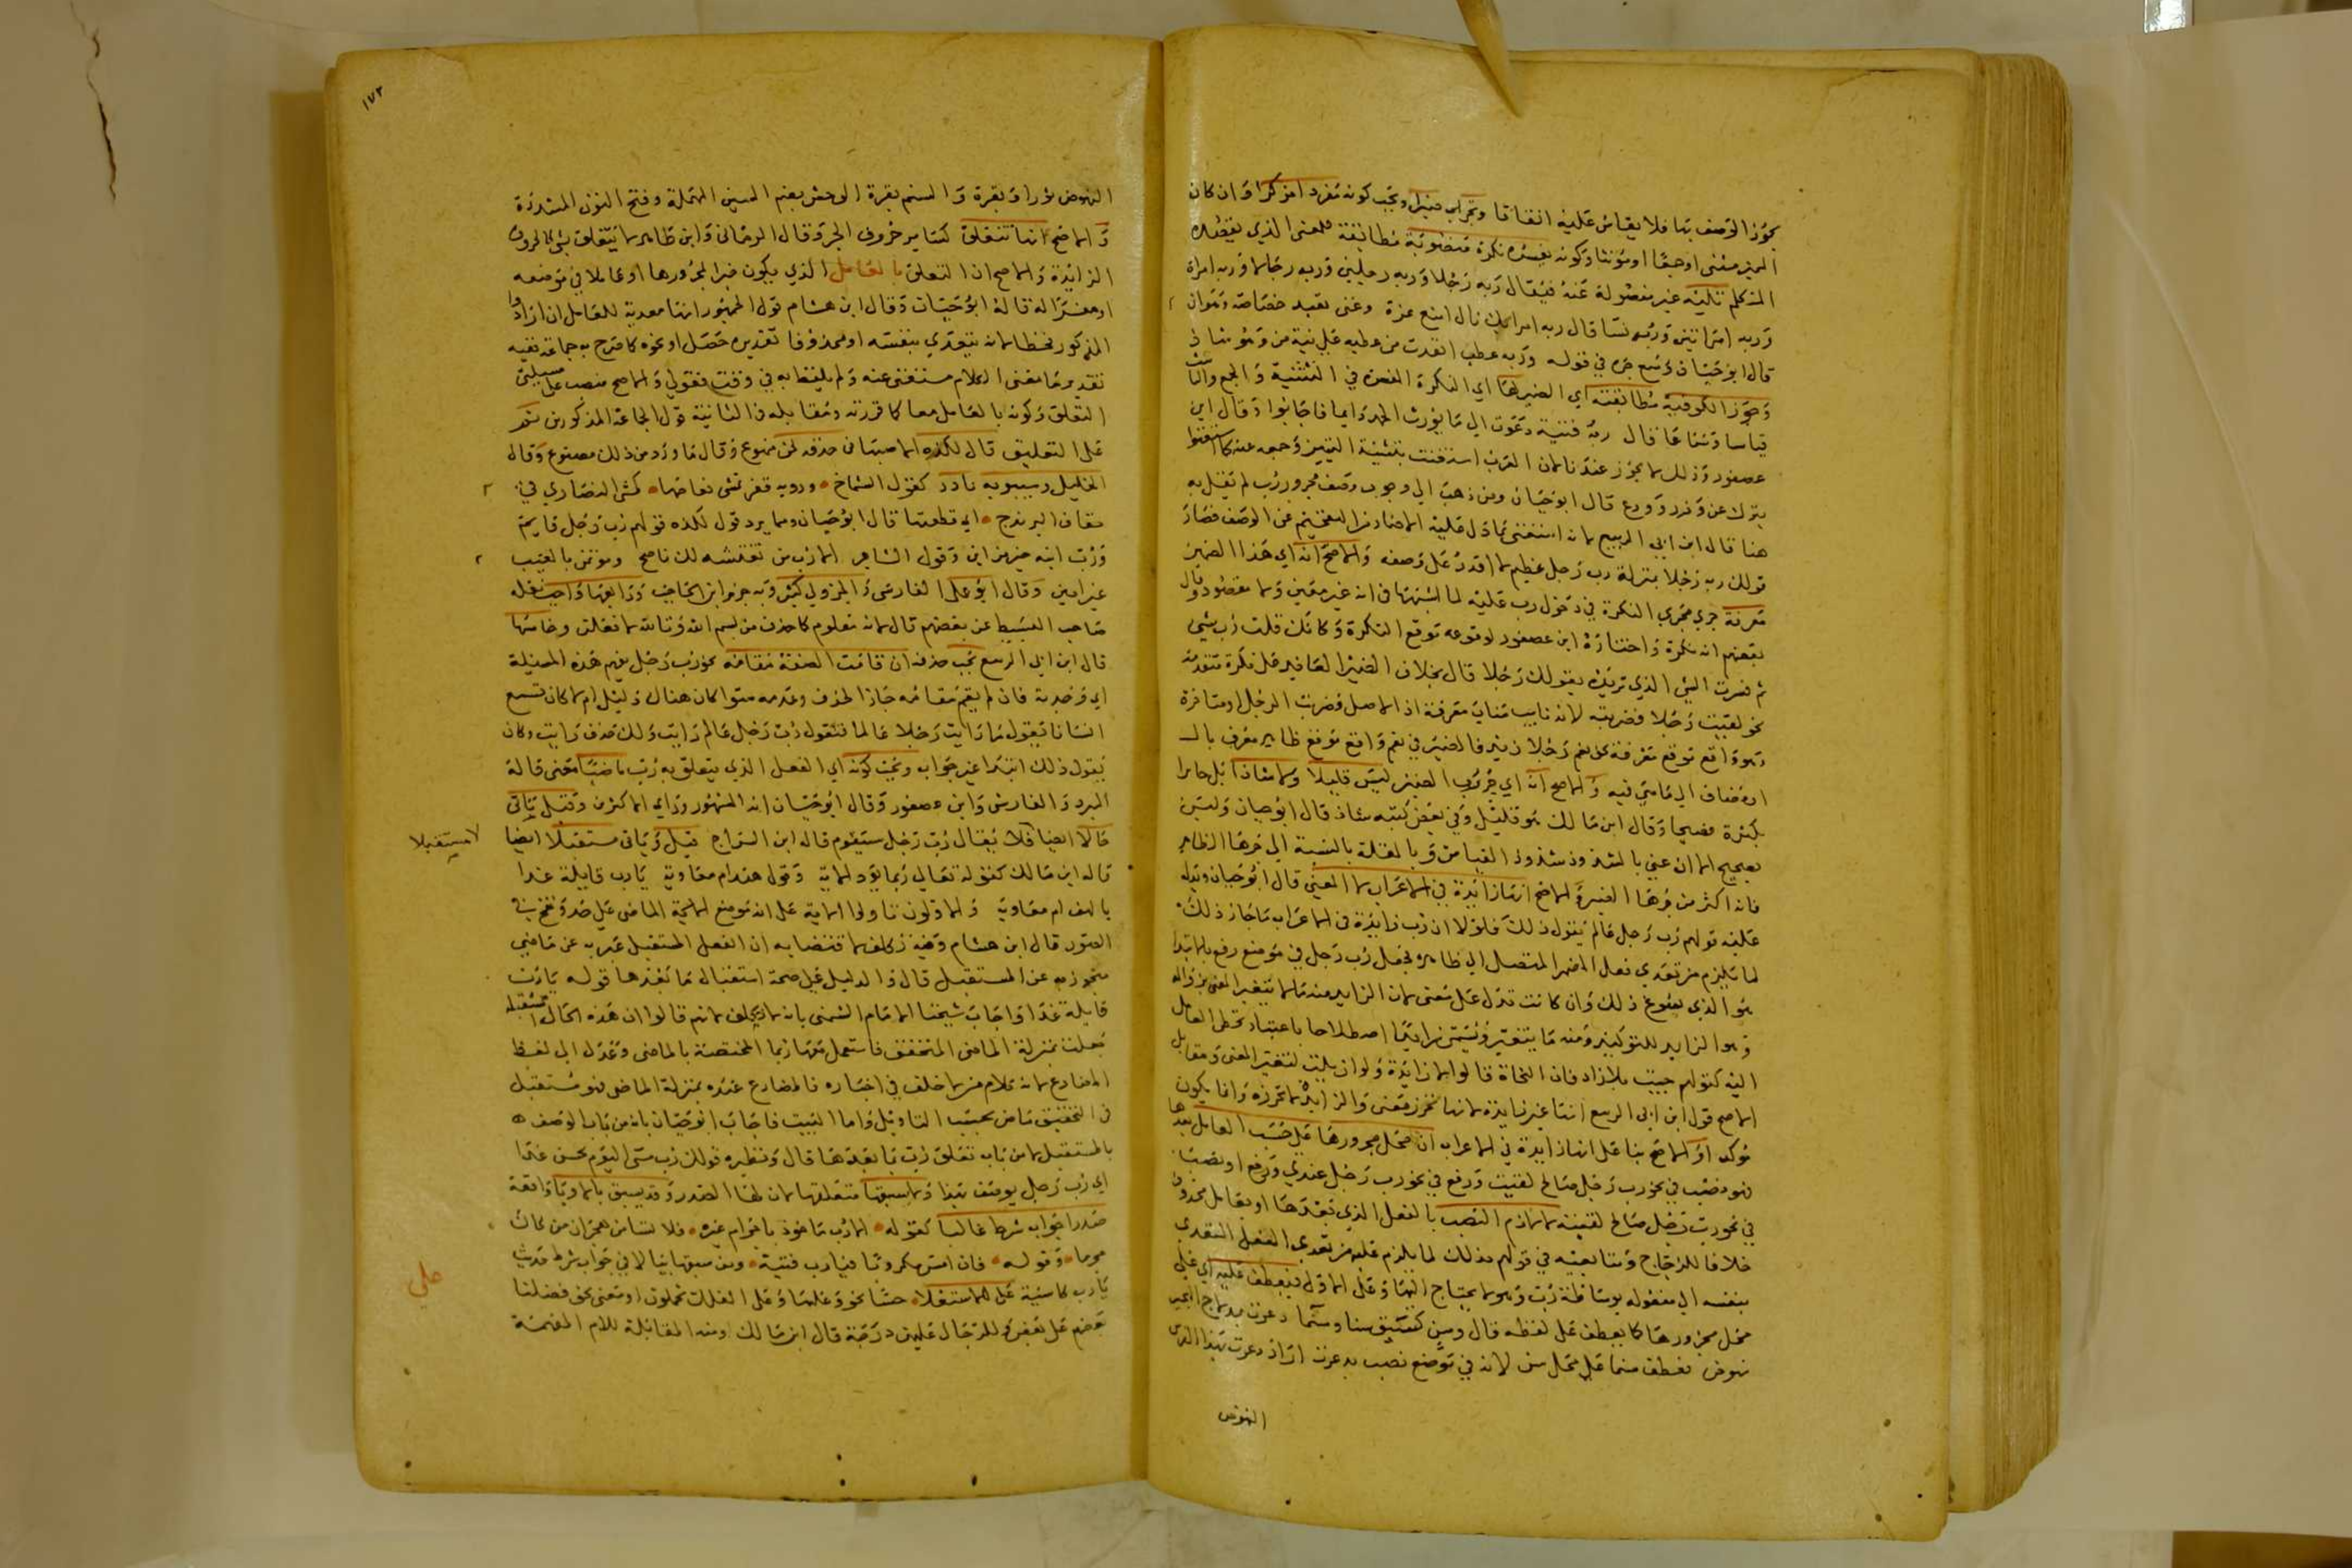 يجوز الوصف بها فلا يقاس عليه اتفاقا وتجر اي ضميرا ويجب كونه مفردا مذكرا وان كان
المميز مثنى او جمعا او مؤنثا وكونه يفسره نكرة منصوبة مطابقة للمعنى الذي يقصده
المتكلم تليه غير مفصولة عنه فيقال ربه رجلا وربه رجلين وربه رجالا وربه امراة
وربه امراتين وربه نسا قال ربه امرا بك نال امنع عزة وغنى بعيد خصاصة وهوان
قال ابو حيان وسمع جره في قوله وربه عطب انقذت من عطبه على نية من وهو شاذ
وجوز الكوفية مطابقته اي الضمير لها اي النكرة المفسرة في التثنية والجمع والتانيث
قياسا وسماعا قال ربه فتية دعوت الى ما يورث الحمد دايما فاجابوا وقال ابن
عصفور وذلك لا يجوز عندنا لان العرب استغنت بتثنية التمييز وجمعه عنه كما استغنوا
بترك عن وذر وودع قال ابو حيان ومن ذهب الى وجوب وصف مجرور رب لم يقل به
هنا قال ابن ابي الربيع لانه استغنى بما دل عليه الاضمار من التفخيم عن الوصف فصار
قولك ربه رجلا بمنزلة رب رجل عظيم لا اقدر على وصفه والاصح انه اي هذا الضمير
معرفة جرى مجرى النكرة في دخول رب عليه لما اشبهها في انه غير معين ولا مقصود وقال
بعضهم انه نكرة واختاره ابن عصفور لوقوعه موقع النكرة وكانك قلت رب شي
ثم فسرت الشي الذي تريده بقولك رجلا قال بخلاف الضمير العايد على نكرة متقدمة
نحو لقيت رجلا فضربته لانه نايب مناب معرفة اذ الاصل فضربت الرجل
وهو واقع موقع معرفة نحو نعم رجلا زيد فالضمير في نعم واقع موقع ظاهر معرف بال
او مضاف الى ما هي فيه والاصح انه اي جر رب الضمير ليس قليلا ولا شاذا بل جايز
بكثرة فصيحا وقال ابن مالك هو قليل وفي بعض كتبه شاذ قال ابو حيان وليس
بصحيح الا ان عني بالشذوذ شذوذ القياس وبالقلة بالنسبة الى جرها الظاهر
فانه اكثر من جرها الضمير والاصح انها زايدة في الاعراب لا المعنى قال ابو حيان ويدل
عليه قولهم رب رجل عالم يقول ذلك فلولا ان رب زايدة في الاعراب ما جاز ذلك
لما يلزم من تعدي فعل المضمر المتصل الى ظاهره فجعل رب رجل في موضع رفع بالابتدا
هو الذي سوغ ذلك وان كانت تدل على معنى لان الزايد منه ما لا يتغير المعنى بزواله
وهو الزايد للتوكيد ومنه ما يتغير ويسمى زايدا اصطلاحا باعتبار تخطي العامل
اليه كقولهم جيت بلا زاد فان النحاة قالوا لا زايدة ولو ازيلت لتغير المعنى ومقابل
الاصح قول ابن ابي الربيع انها غير زايدة لانها تحرز معنى والزايدة لا تحرزه وانما يكون
مؤكدا والاصح بنا على انها زايدة في الاعراب ان محل مجرورها على حسب العامل بعدها
فهو نصب في نحو رب رجل صالح لقيت ورفع في نحو رب رجل عندي ورفع او نصب
في نحو رب رجل صالح لقيته لا لازم النصب بالفعل الذي بعدها او بعامل محذوف
خلافا للزجاج ومتابعيه في قولهم بذلك لما يلزم عليه من تعدي الفعل المتعدي
بنفسه الى مفعوله بوساطة رب وهو لا يحتاج اليها وعلى الاول فيعطف عليه اي على
محل مجرورها كما يعطف على لفظه قال وسن كسنيق سنا وسنما ذعرت بمدلاج الهجير
نهوض فعطف سنما على محل سن لانه في موضع نصب بذعرت اراد ذعرت بهذا الفرس
النهوض
١٧٢
النهوض ثورا وبقرة والسنم بقرة الوحش بضم السين المهملة وفتح النون المشددة
والاصح انها تتعلق كساير حروف الجر وقال الرماني وابن طاهر لا يتعلق بشي كالحروف
الزايدة والاصح ان التعلق بالعامل الذي يكون خبرا لمجرورها او عاملا في موضعه
او مفسرا له قاله ابو حيان وقال ابن هشام قول الجمهور انها معدية للعامل ان ارادوا
المذكور فخطا لانه يتعدى بنفسه او محذوفا تقديره حصل او نحوه كما صرح به جماعة ففيه
تقدير ما معنى الكلام مستغنى عنه ولم يلفظ به في وقت فقولي والاصح منصب على مسيلتي
التعلق وكونه بالعامل معا كما قررته ومقابله في الثانية قول الجماعة المذكورين
على التعليق قال لكذه الاصبهاني حذفه لحن ممنوع وقال ما ورد من ذلك مصنوع وقال
الخليل وسيبويه نادر كقول الشماخ ودوية قفر تمشى نعامها كمشي النصارى في
خفاف اليرندج اي قطعتها قال ابو حيان ومما يرد قول لكذه قولهم رب رجل قايم
ورب ابنه خير من ابن وقول الشاعر الا رب من تغتشه لك ناصح ومؤتمن بالغيب
غير امين وقال ابو علي الفارسي والجزولي كثير وبه جزم ابن الحاجب ورابعها واجب نقله
صاحب البسيط عن بعضهم قال لانه معلوم كما حذف من بسم الله وتالله لا فعلن وخامسها
قال ابن ابي الربيع يجب حذفه ان قامت الصفة مقامه نحو رب رجل يفهم هذه المسيلة
اي وجدته فان لم يقم مقامه جاز الحذف وعدمه سوا كان هناك دليل ام لا كان تسمع
انسانا يقول ما رايت رجلا عالما فتقول رب رجل عالم رايت ولك حذف رايت وكان
يقول ذلك ابتدا غير جواب ويجب كونه اي الفعل الذي يتعلق به رب ماضيا معنى قاله
المبرد والفارسي وابن عصفور وقال ابو حيان انه المشهور وراي الاكثرين وقيل ياتي
حالا ايضا فلا يقال رب رجل سيقوم قاله ابن السراج قيل وياتي مستقبلا ايضا
لا مستقبلا
قاله ابن مالك كقوله تعالى ربما يود الاية وقول هند ام معاوية يارب قايلة غدا
يا لهف ام معاوية والاولون تاولوا الاية على انه موضع الماضي على حد ونفخ في
الصور قال ابن هشام وفيه تكلف لاقتضايه ان الفعل المستقبل عبر به عن ماضي
متجوز به عن المستقبل قال والدليل على صحة استقبال ما بعدها قوله يارب
قايلة غدا واجاب شيخنا الامام الشمني بانه لا تكلف لانهم قالوا ان هذه الحال المستقبلة
جعلت بمنزلة الماضي المتحقق فاستعمل معها ربما المختصة بالماضي وعدل الى لفظ
المضارع لانه كلام من لا خلف في اخباره فالمضارع عنده بمنزلة الماضي فهو مستقبل
في التحقيق ماض بحسب التاويل واما البيت فاجاب ابو حيان بانه من باب الوصف
بالمستقبل لا من باب تعلق رب بما بعدها قال ونظيره قولك رب مسي اليوم يحسن غدا
اي رب رجل يوصف بهذا ولا يسبقها متعلقها لان لها الصدر وقد يسبق بالا ويا واقعة
صدر جواب شرط غالبا كقوله الا رب ماخوذ باجرام غيره فلا تسامن هجران من كان
مجرما وقوله فان امس مكروبا فيارب فتية ومن سبقها بيا لا في جواب شرط حديث
يا رب كاسية على للاستعلا حسا نحو وعليها وعلى الفلك تحملون او معنى نحو فضلنا
بعضهم على بعض وللرجال عليهن درجة قال ابن مالك ومنه المقابلة للام المفهمة
على